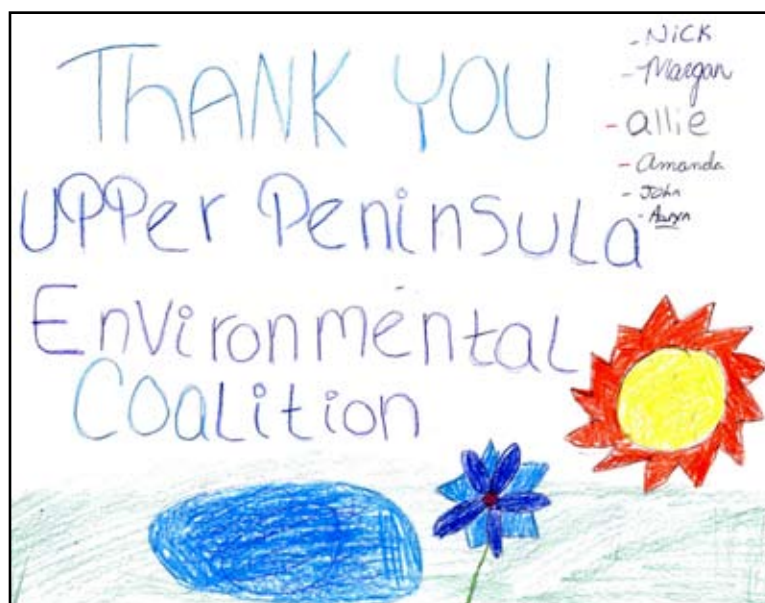 THANK YOU
UPPer PeninSuLa
EnVironmental
COaLition
- NiCK
- Margan
- allie
- Amanda
- John